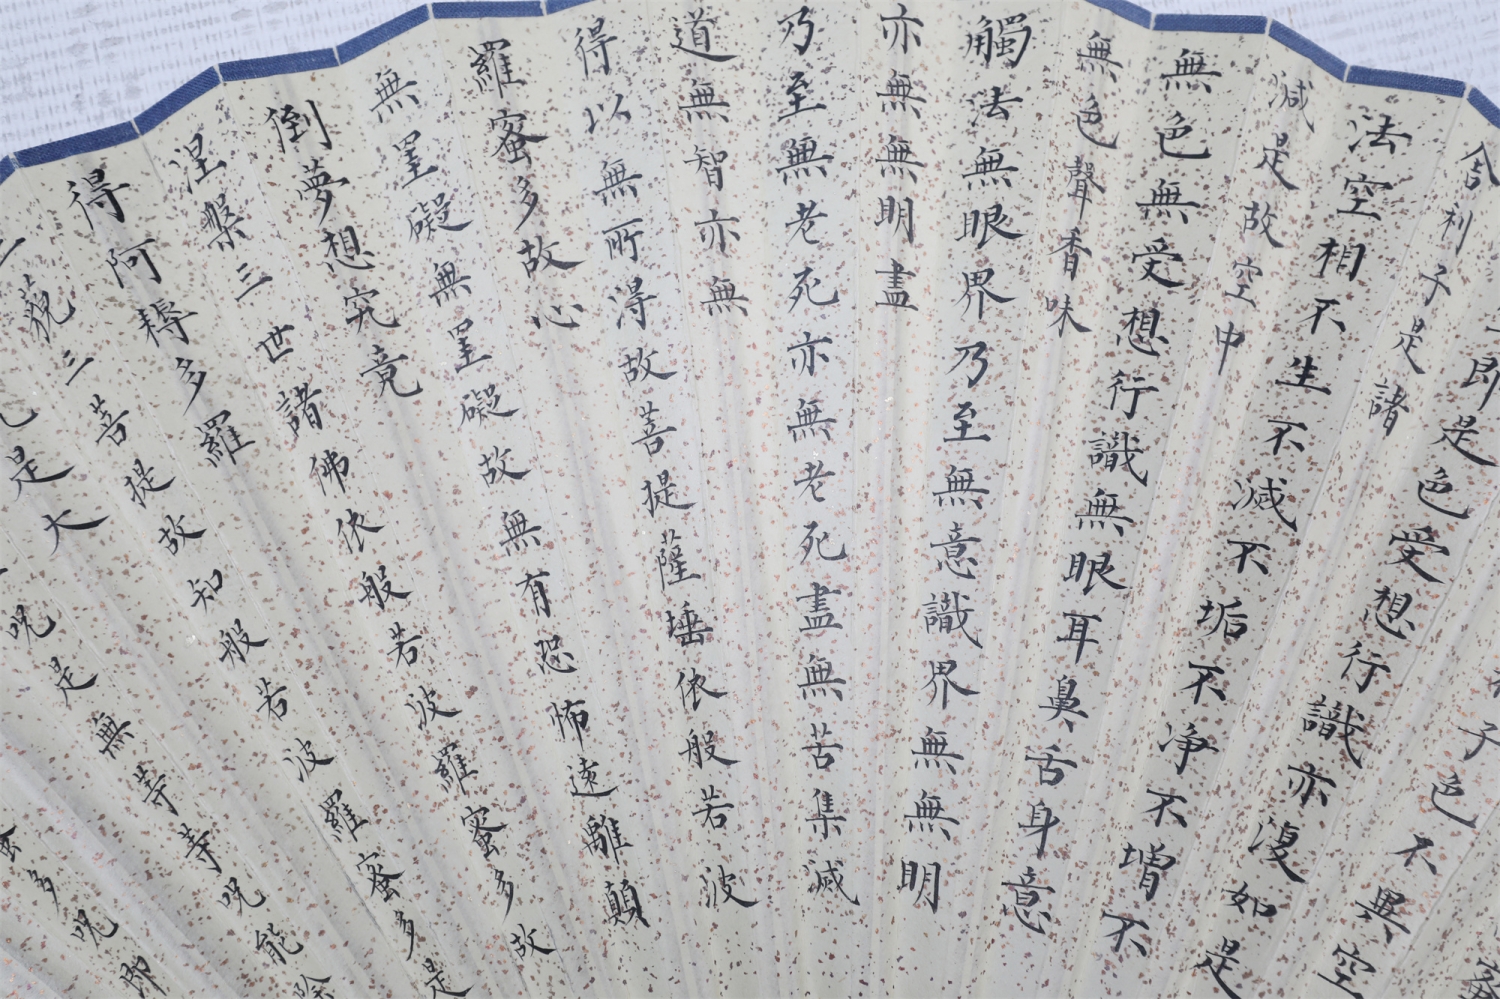 子色不異空
即是色受想行識亦復如是
舍利子是諸
法空相不生不減不垢不净不增不
減是故空中
無色無受想行識無眼耳鼻舌身意
無色聲香味
觸法無眼界乃至無意識界無無明
亦無無明盡
乃至無老死亦無老死盡無苦集減
道無智亦無
得以無所得故菩提薩埵依般若波
羅蜜多故心
無罣礙無罣礙故無有恐怖遠離顛
倒夢想究竟
涅槃三世諸佛依般若波羅蜜多故
得阿耨多羅
三藐三菩提故知般若波羅蜜多是
是大
呪是無等等呪能除
蜜多呪即